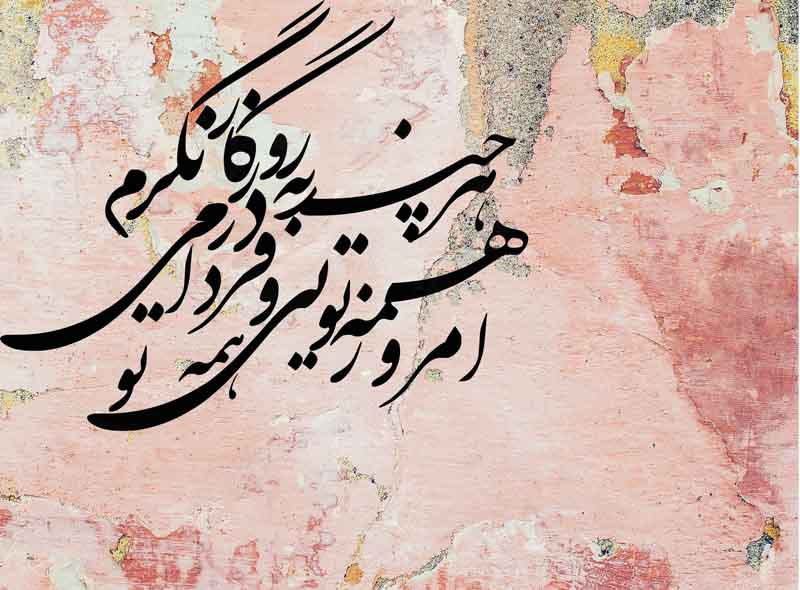 هر چند به روزگار در می نگرم
امروز همه تویی و فردا همه تو